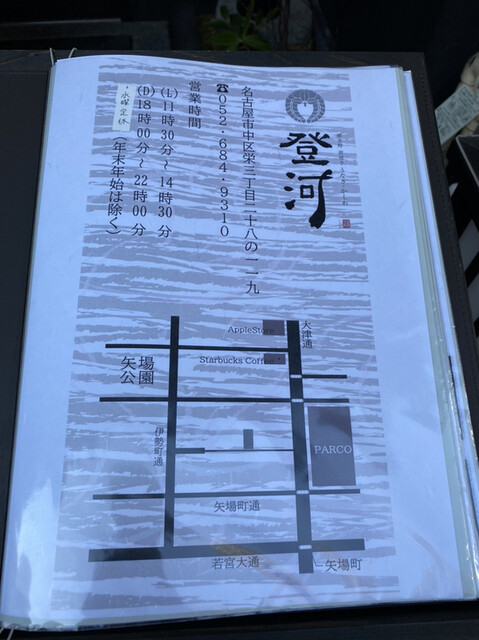 登河
名古屋市中区栄三丁目二十八の一一九
☎052・684・9310
営業時間
(L) 11時30分～14時30分
(D) 18時00分～22時00分
・水曜定休
(年末年始は除く)
AppleStore
大津通
Starbucks Coffee
矢場公園
伊勢町通
PARCO
矢場町通
若宮大通
矢場町